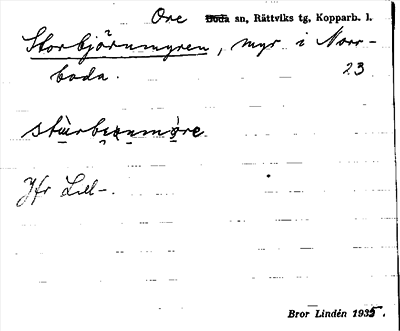 Ore Boda sn, Rättviks tg, Kopparb. l.
Storbjörnmyren, myr i Norr-
boda. 23
Jfr Lill-.
Bror Lindén 1935.